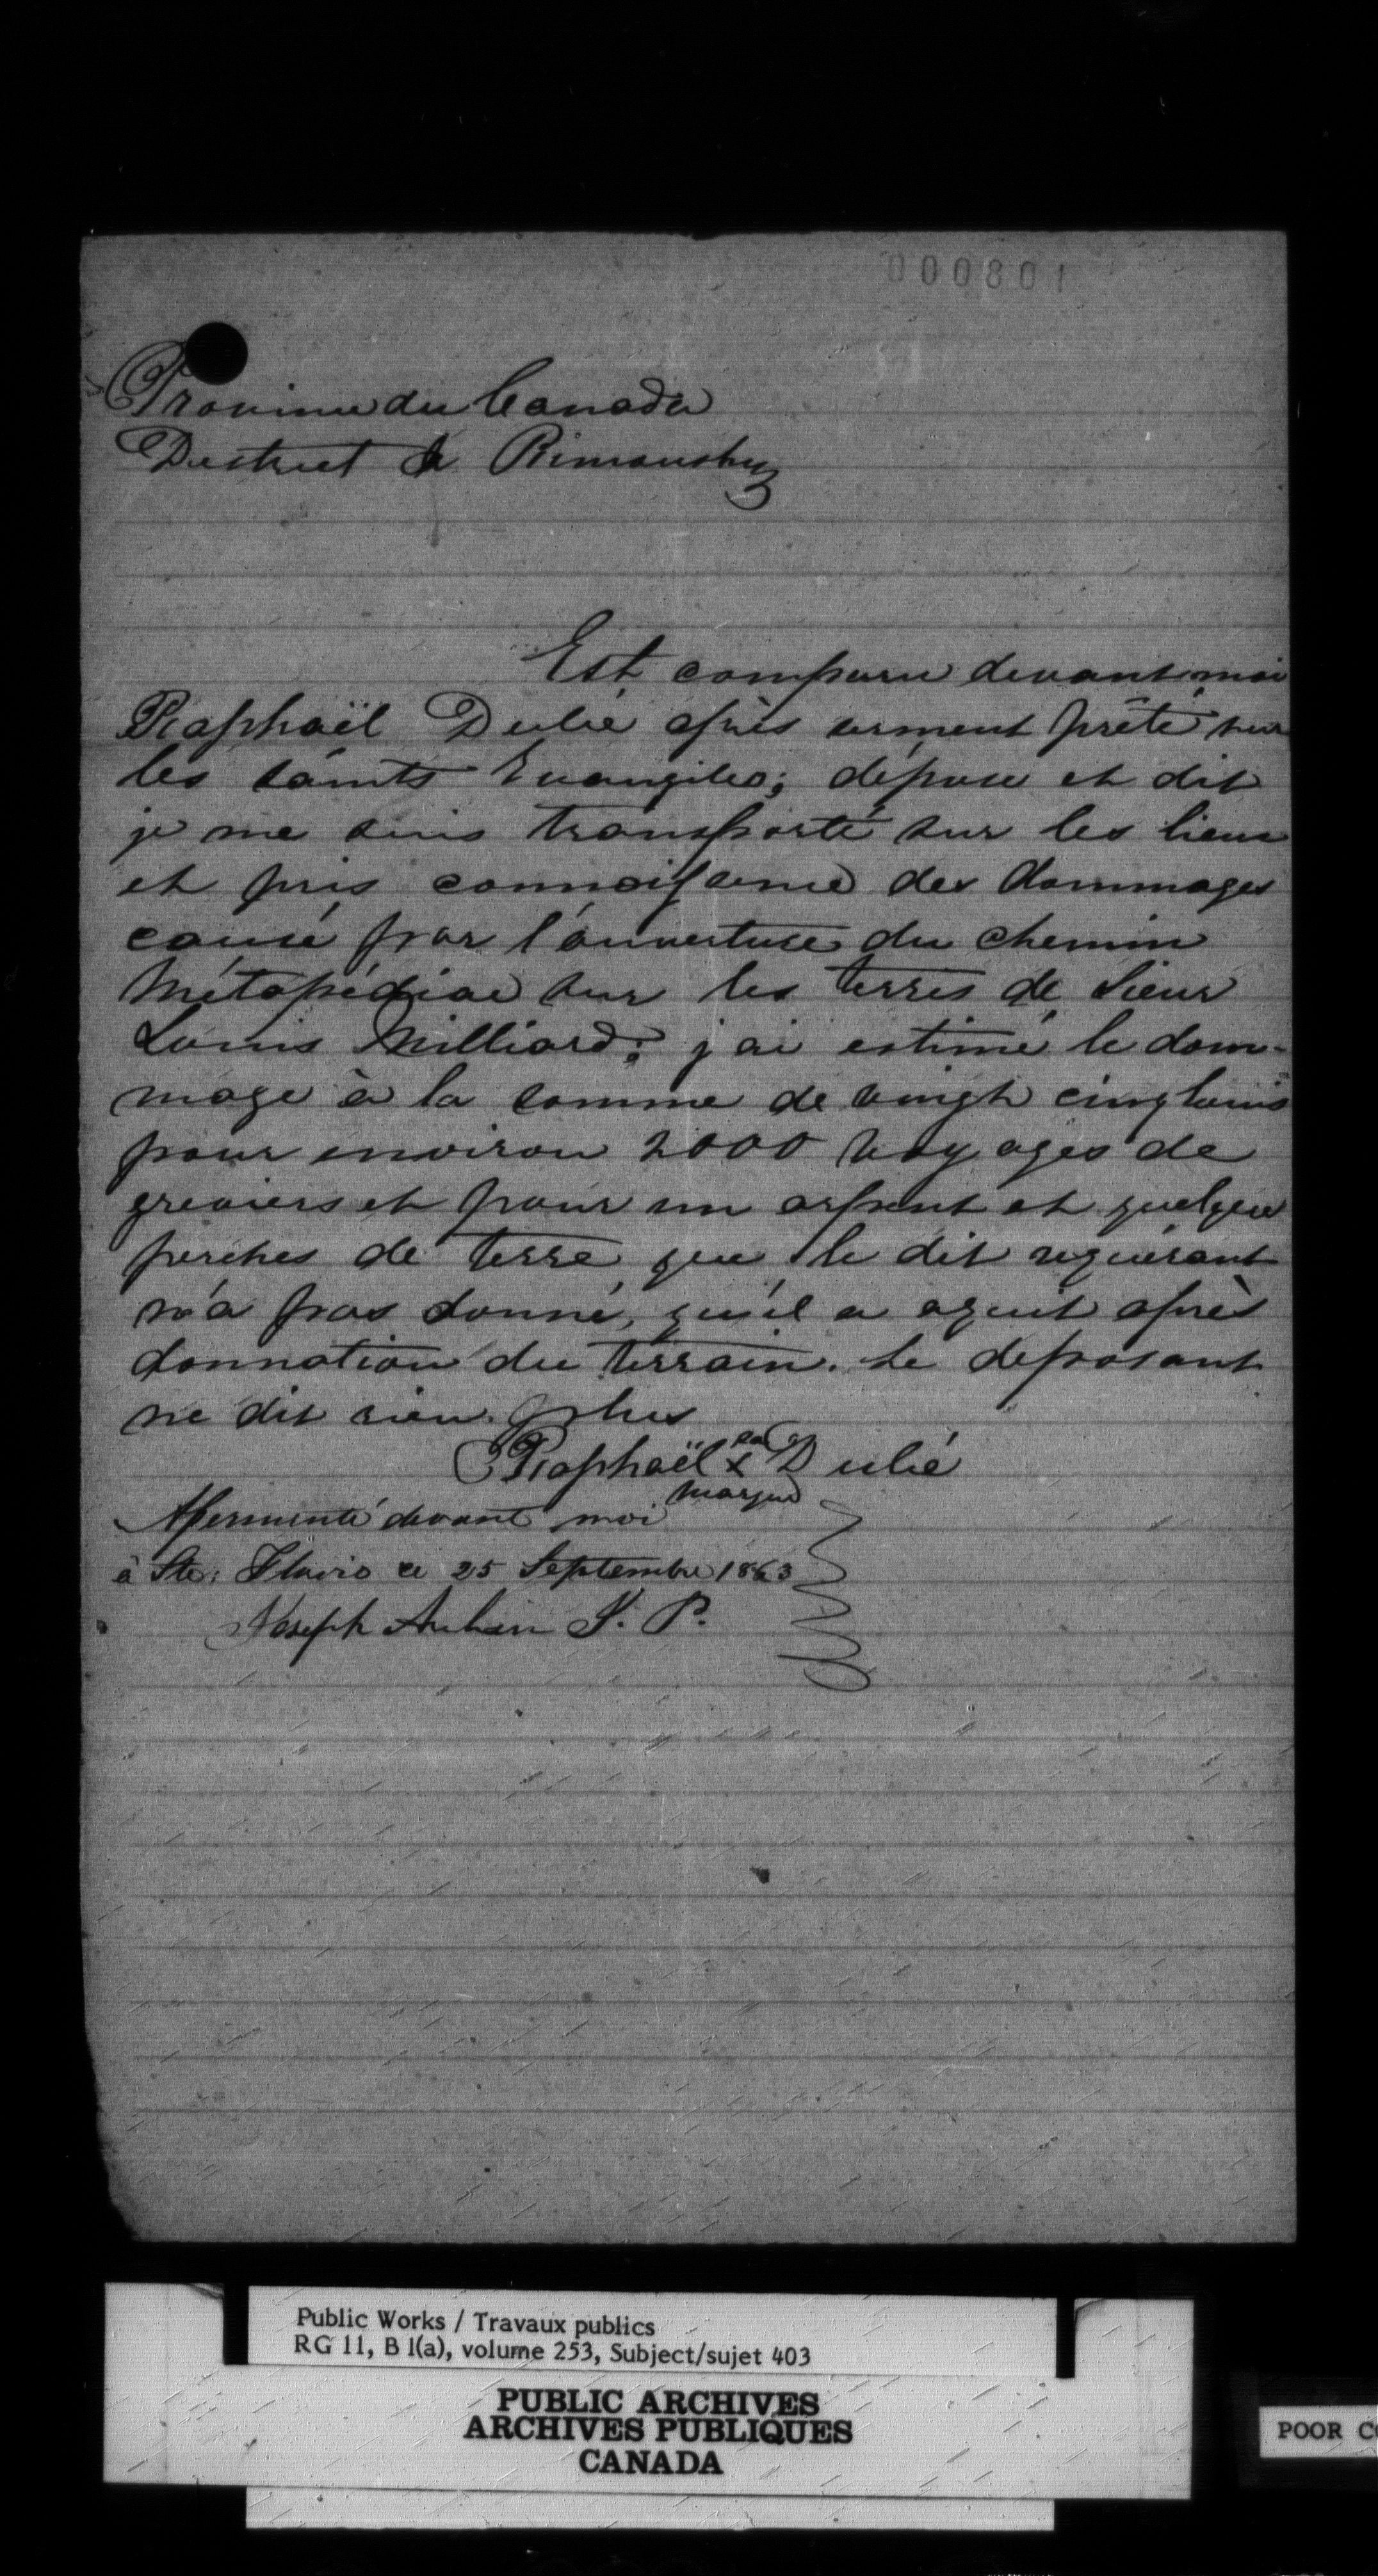 000801
Province du Canada
District de Rimousky
Est comparu devant moi
Raphaël Dubé après serment prêté sur
les saints Evangiles; dépose et dit
je me suis transporté sur les lieux
et pris connaissance des dommages
causé par l'ouverture du chemin
Métapédiac sur les terres de Sieur
Louis Milliard; j ai estimé le dom-
mage à la somme de vingt cinq louis
pour environ 2000 voyages de
graviers et pour un arpent et quelque
perches de terre que le dit requérant
n'a pas donné, qu'il a aquit après
donnation du terrain. Le deposant
ne dit rien plus
Raphaël sa x marque Dubé
Assermenté devant moi
à Ste: Flavie ce 25 Septembre 1863
Joseph Aubin J. P.
Public Works / Travaux publics
RG 11, B 1(a), volume 253, Subject/sujet 403
PUBLIC ARCHIVES
ARCHIVES PUBLIQUES
CANADA
POOR CO